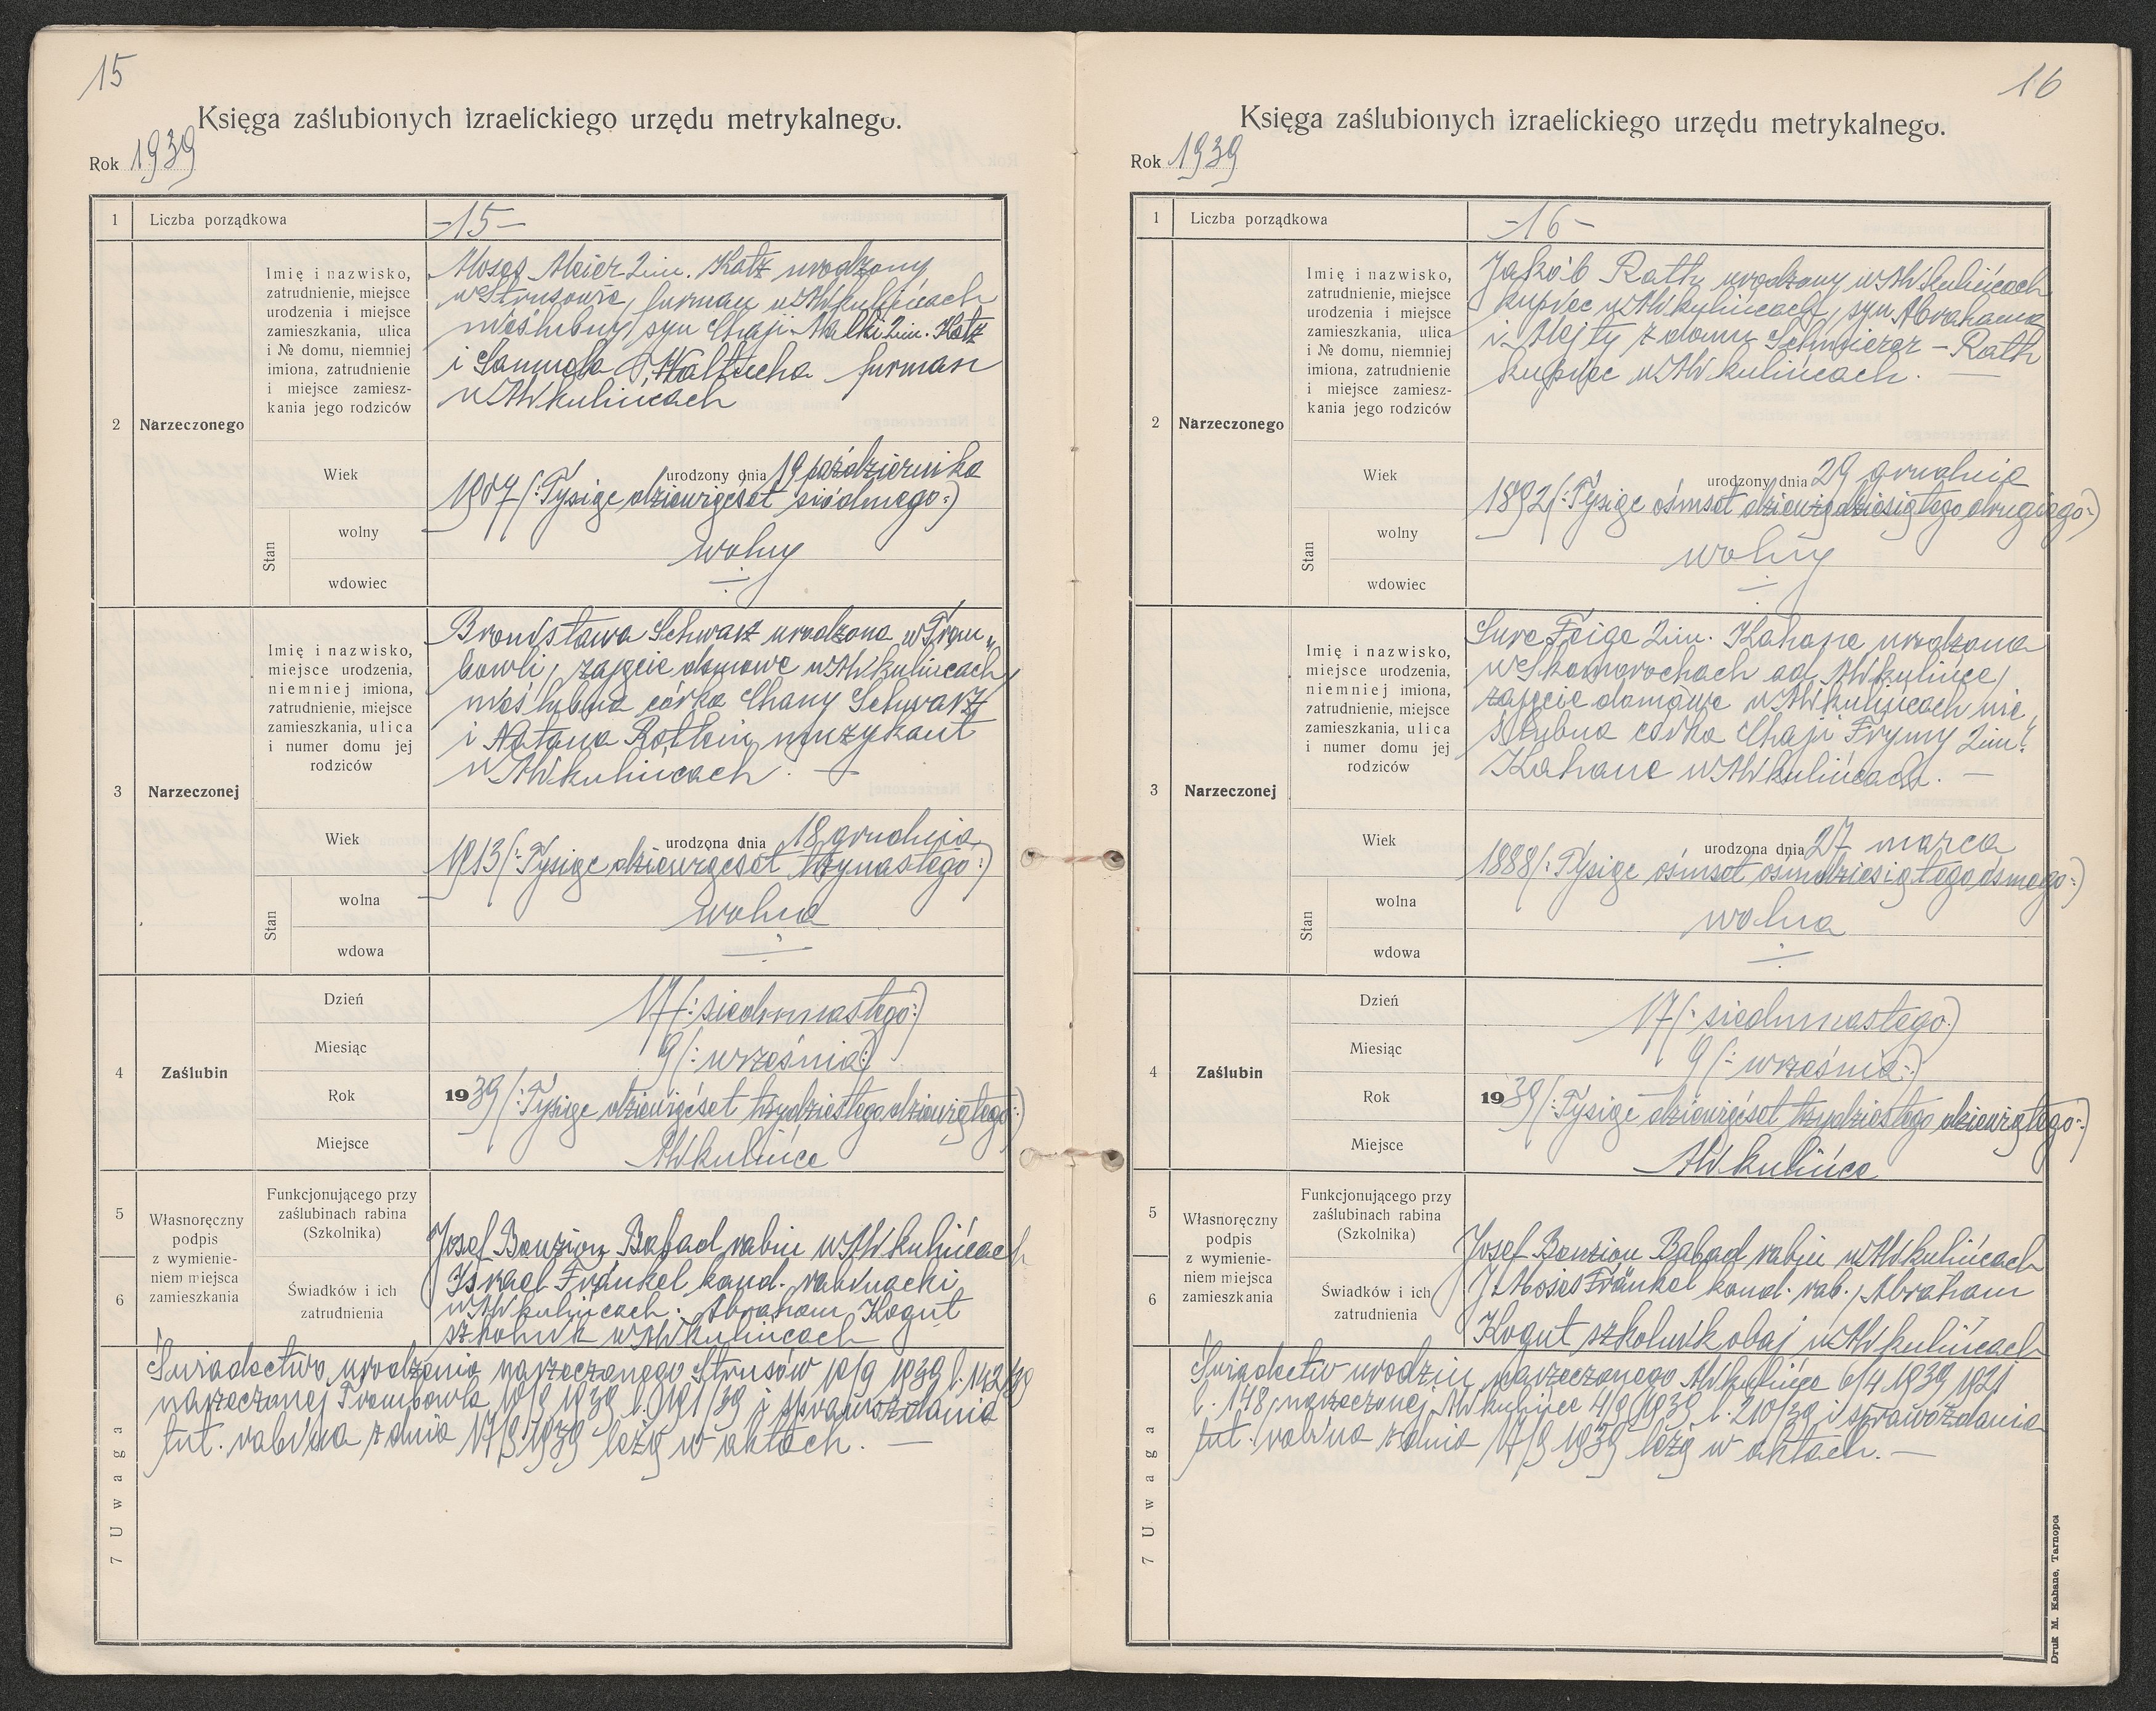 15
Księga zaślubionych izraelickiego urzędu metrykalnego.
Rok 1939
1 Liczba porządkowa -15-
2 Narzeczonego
Imię i nazwisko,
zatrudnienie, miejsce
urodzenia i miejsce
zamieszkania, ulica
i № domu, niemniej
imiona, zatrudnienie
i miejsce zamiesz-
kania jego rodziców
Moses Meier 2im. Katz urodzony
w Strusowie, furman w Mikulińcach
nieślubny syn Chaji Malki 2im. Katz
i Samuela Waltucha furman
w Mikulińcach
Wiek
urodzony dnia 19 października
1907 (: Tysiąc dziewięćset siódmego :)
Stan
wolny
wolny
wdowiec
3 Narzeczonej
Imię i nazwisko,
miejsce urodzenia,
niemniej imiona,
zatrudnienie, miejsce
zamieszkania, ulica
i numer domu jej
rodziców
Bronisława Schwarz urodzona w Trem„
bowli, zajęcie domowe w Mikulińcach,
nieślubna córka Chany Schwarz
i Natana muzykant
w Mikulińcach. —
Wiek
urodzona dnia 18 grudnia
1913 (: Tysiąc dziewięćset trzynastego :)
Stan
wolna
wolna
wdowa
4 Zaślubin
Dzień 17 (: siedmnastego :)
Miesiąc 9 (: września :)
Rok 1939 (: Tysiąc dziewięćset trzydziestego dziewiątego :)
Miejsce Mikulińce
5
6
Własnoręczny
podpis
z wymienie-
niem miejsca
zamieszkania
Funkcjonującego przy
zaślubinach rabina
(Szkolnika)
Świadków i ich
zatrudnienia
Josef Benzion Babad rabin w Mikulińcach
Israel Fränkel kand. rabinacki
w Mikulińcach. Abraham Kogut
szkolnik w Mikulińcach
7 Uwaga
Świadectwa urodzenia narzeczonego Strusów 10/9 1939 l. 142/39
narzeczonej Trembowla 10/9 1939 l. 191/39 i sprawozdania
tut. rabina z dnia 17/9 1939 leżą w aktach. —
16
Księga zaślubionych izraelickiego urzędu metrykalnego.
Rok 1939
1 Liczba porządkowa -16-
2 Narzeczonego
Imię i nazwisko,
zatrudnienie, miejsce
urodzenia i miejsce
zamieszkania, ulica
i № domu, niemniej
imiona, zatrudnienie
i miejsce zamiesz-
kania jego rodziców
Jakób Rath urodzony w Mikulińcach
kupiec w Mikulińcach, syn Abrahama
i z domu Schmierer - Rath
kupiec w Mikulińcach. —
Wiek
urodzony dnia 29 grudnia
1892 (: Tysiąc ośmset dziewiędziesiątego drugiego :)
Stan
wolny
wolny
wdowiec
3 Narzeczonej
Imię i nazwisko,
miejsce urodzenia,
niemniej imiona,
zatrudnienie, miejsce
zamieszkania, ulica
i numer domu jej
rodziców
Sure Feige 2im. Kahane urodzona
w Skomorochach ad Mikulińce,
zajęcie domowe w Mikulińcach nie„
ślubna córka Chaji Frymy 2im.
Kahane w Mikulińcach. —
Wiek
urodzona dnia 27 marca
1888 (: Tysiąc ośmset ośmdziesiątego ósmego :)
Stan
wolna
wolna
wdowa
4 Zaślubin
Dzień 17 (: siedmnastego :)
Miesiąc 9 (: września :)
Rok 1939 (: Tysiąc dziewięćset trzydziestego dziewiątego :)
Miejsce Mikulińce
5
6
Własnoręczny
podpis
z wymienie-
niem miejsca
zamieszkania
Funkcjonującego przy
zaślubinach rabina
(Szkolnika)
Świadków i ich
zatrudnienia
Josef Benzion Babad rabin w Mikulińcach
Moses Fränkel kand. rab., Abraham
Kogut szkolnik obaj w Mikulińcach
7 Uwaga
Świadectw urodzin narzeczonego Mikulińce 6/4 1939 1921
l. 178, narzeczonej Mikulińce 4/9 1939 l. 210/39 i sprawozdania
tut. rabina z dnia 17/9 1939 leżą w aktach. —
Druk M. Kahane, Tarnopol